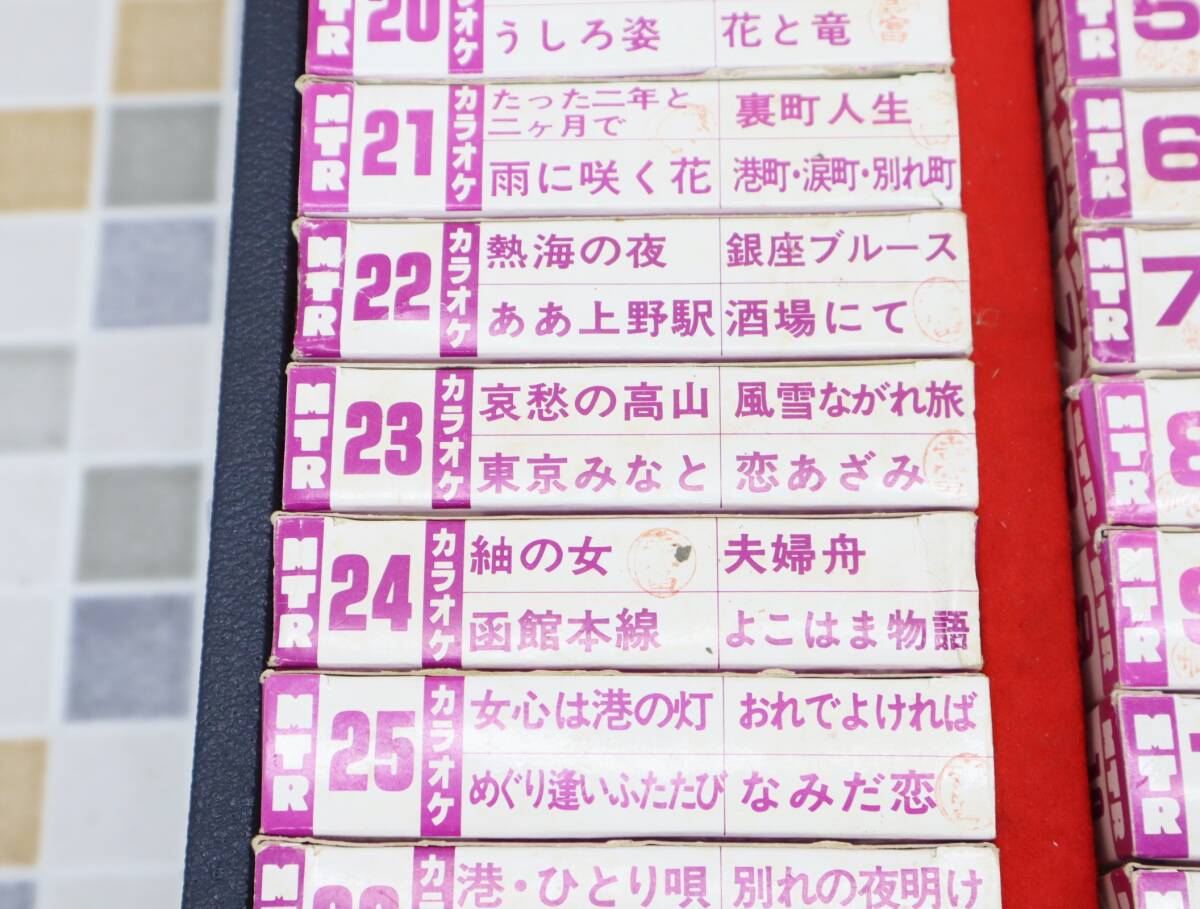 MTR 20 カラオケ
うしろ姿 花と竜
MTR 21 カラオケ
たった二年と
二ヶ月で
裏町人生
雨に咲く花 港町・涙町・別れ町
MTR 22 カラオケ
熱海の夜 銀座ブルース
ああ上野駅 酒場にて
MTR 23 カラオケ
哀愁の高山 風雪ながれ旅
東京みなと 恋あざみ
MTR 24 カラオケ
紬の女 夫婦舟
函館本線 よこはま物語
MTR 25 カラオケ
女心は港の灯 おれでよければ
めぐり逢いふたたび なみだ恋
港・ひとり唄 別れの夜明け
MTR 5
MTR 6
MTR 7
MTR 8
MTR 9
MTR